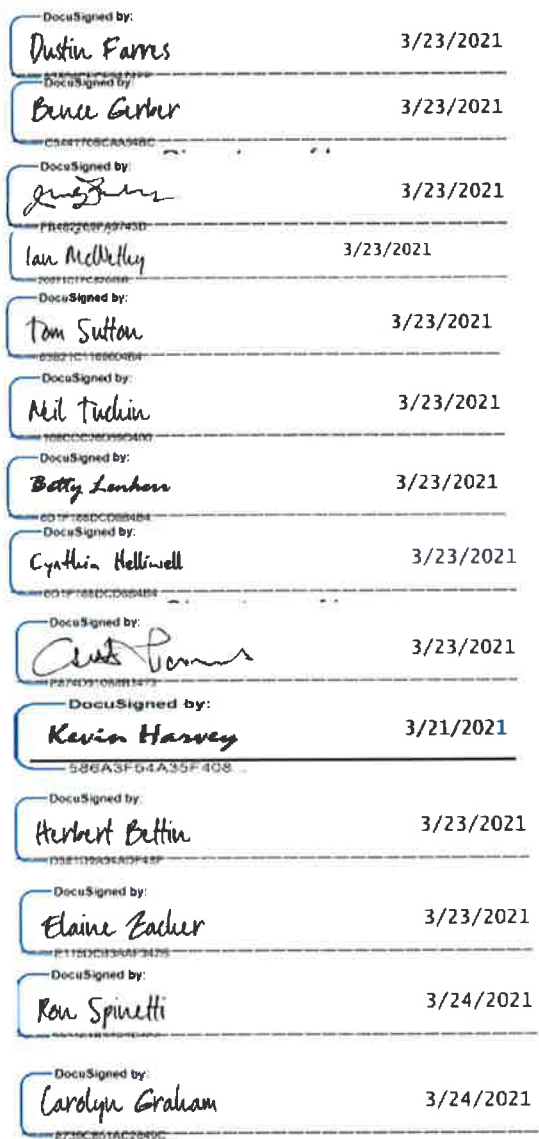 DocuSigned by:
Dustin Farres 3/23/2021
DocuSigned by:
Bence Gerber 3/23/2021
DocuSigned by:
3/23/2021
Ian McWethy 3/23/2021
DocuSigned by:
Tom Sutton 3/23/2021
DocuSigned by:
Neil Tuchin 3/23/2021
DocuSigned by:
Betty Lenhers 3/23/2021
6D1F168DCD8B4B4
DocuSigned by:
Cynthia Helliwell 3/23/2021
6D1F168DCD8B4B4
DocuSigned by:
3/23/2021
DocuSigned by:
Kevin Harvey 3/21/2021
586A3F54A35F408...
DocuSigned by:
Herbert Bettin 3/23/2021
DocuSigned by:
Elaine Zacher 3/23/2021
DocuSigned by:
Ron Spinetti 3/24/2021
DocuSigned by:
Carolyn Graham 3/24/2021